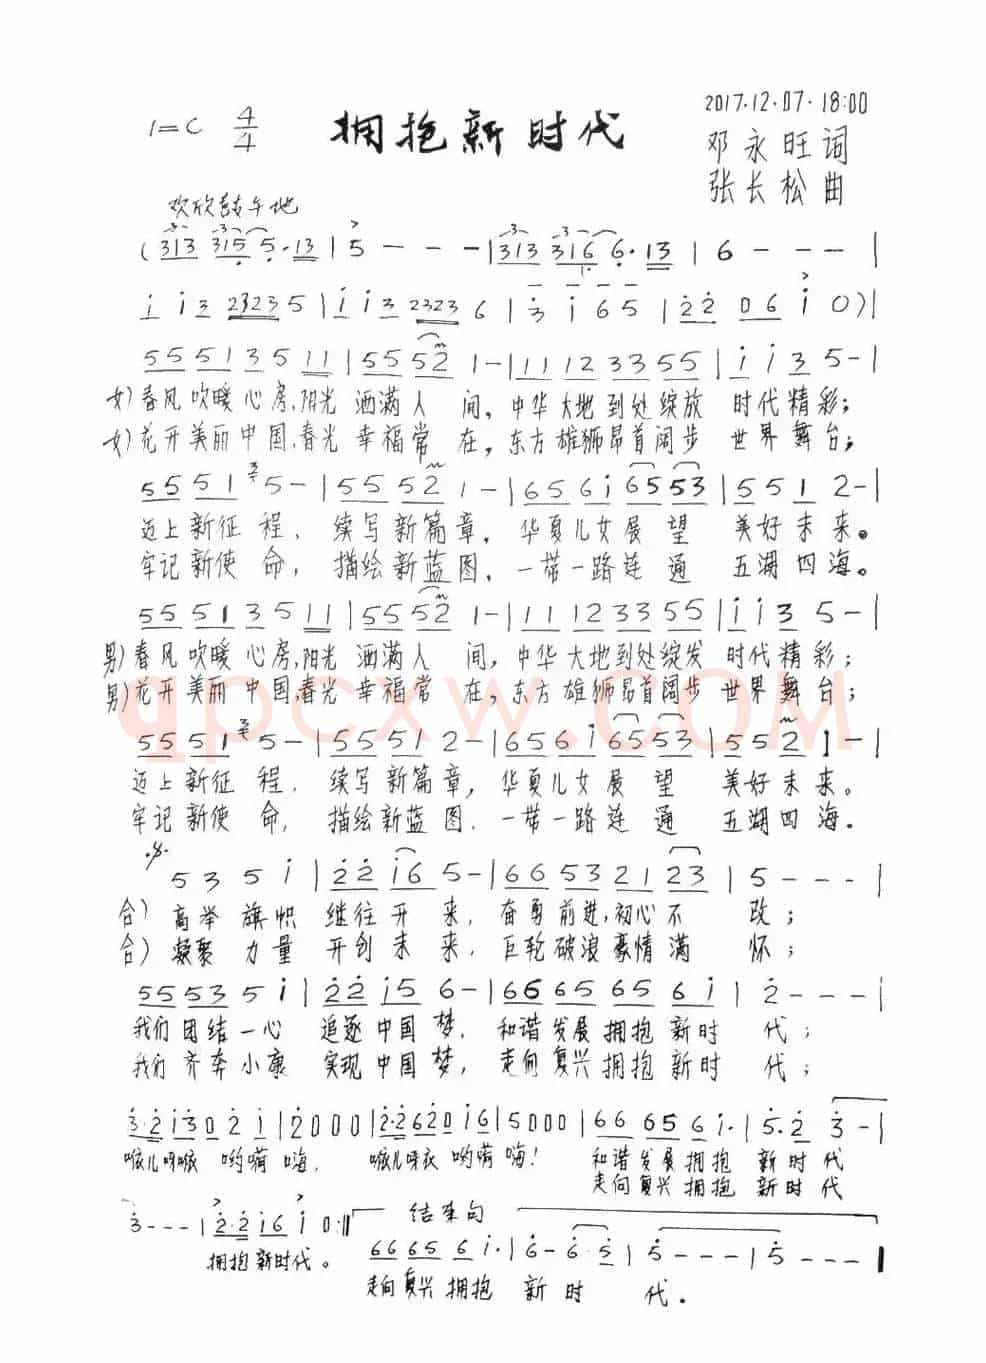 2017.12.07.18:00
1=C 4/4 拥抱新时代
邓永旺词
张长松曲
欢欣鼓午地
(313 315 5·13 | 5 - - - | 313 316 6·13 | 6 - - - |
i i3 2323 5 | i i3 2323 6 | 3 i 6 5 | 22 06 i 0) |
555135 11 | 5552 1 - | 1112 33 55 | i i 3 5 - |
女)春风吹暖心房,阳光洒满人间,中华大地到处绽放时代精彩;
女)花开美丽中国,春光幸福常在,东方雄狮昂首阔步世界舞台;
5551 5 - | 55552 1 - | 656i 6553 | 551 2 - |
迈上新征程,续写新篇章,华夏儿女展望美好未来。
牢记新使命,描绘新蓝图,一带一路连通五湖四海。
555135 11 | 5552 1 - | 1112 33 55 | i i 3 5 - |
男)春风吹暖心房,阳光洒满人间,中华大地到处绽发时代精彩;
男)花开美丽中国,春光幸福常在,东方雄狮昂首阔步世界舞台;
qpcxw.COM
5551 5 - | 55551 2 - | 656i 6553 | 552 1 - |
迈上新征程,续写新篇章,华夏儿女展望美好未来。
牢记新使命,描绘新蓝图,一带一路连通五湖四海。
53 5 i | 22 i6 5 - | 66 53 21 23 | 5 - - - |
合)高举旗帜继往开来,奋勇前进,初心不改;
合)凝聚力量开创未来,巨轮破浪豪情满怀;
5553 5 i | 22 i5 6 - | 66 65 65 6i | 2 - - - |
我们团结一心追逐中国梦,和谐发展拥抱新时代;
我们齐奔小康实现中国梦,走向复兴拥抱新时代;
3·2 i3 0 2 i | 2000 | 2·2 62 0 i6 | 5000 | 66 65 6 i· | 5·2 3 - |
嗨!和谐发展拥抱新时代
走向复兴拥抱新时代
3 - - - | 2·2 i6 i 0 :|| 结束句
66 65 6 i· | 6 - 6·5 | 5 - - - | 5 - - - |
拥抱新时代。
走向复兴拥抱新时代。